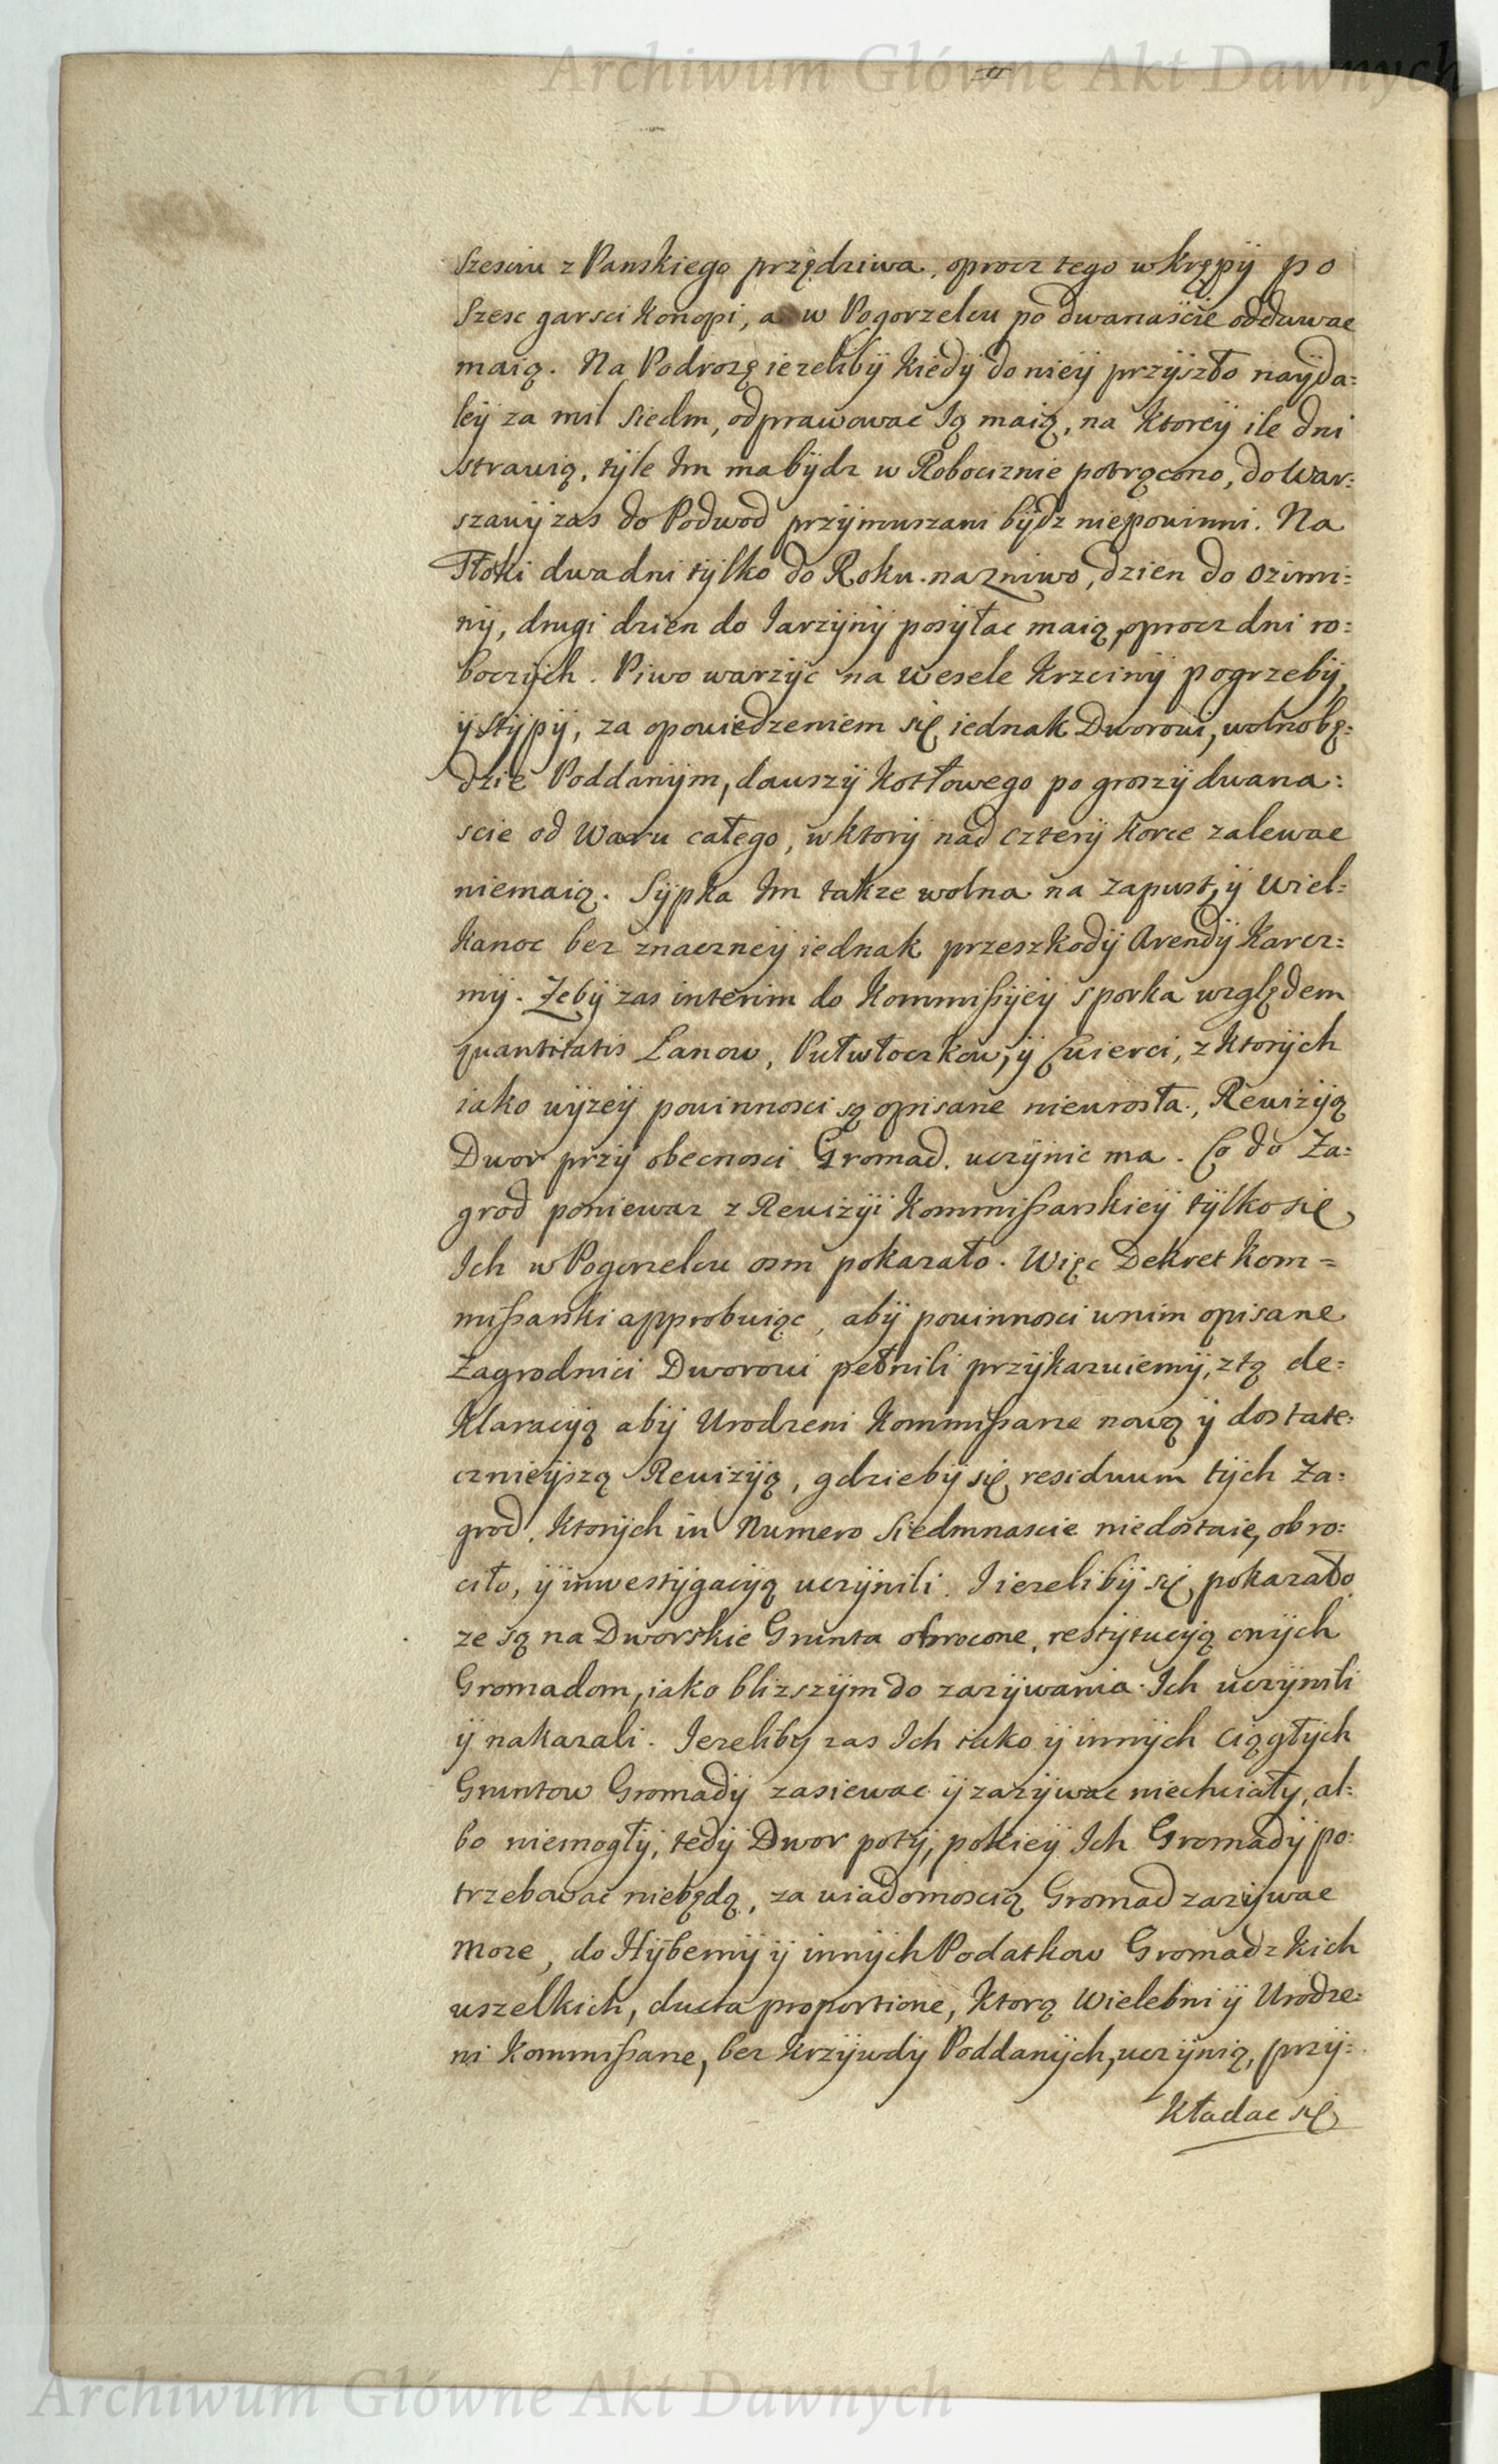 Archiwum Główne Akt Dawnych
szesciu z Panskiego przędziwa, oprocz tego w Krępÿ po
szesc garsci Konopi, a w Pogorzelcu po dwanascie oddawac
maią. Na Podrozą iezelibÿ Kiedÿ do nieÿ przÿszło naÿda=
leÿ za mil siedm, odprawowac Ią maią, na Ktoreÿ ile dni
strawią, tÿle Im ma bÿdz w Robociznie potrącono, do War=
szawÿ zas do Podwod przÿmuszani bÿdz niepowinni. Na
Tłoki dwa dni tÿlko do Roku na zniwo, dzien do Ozimi=
nÿ, drugi dzien do Iarzÿnÿ posÿłac maią, oprocz dni ro=
boczÿch. Piwo warzÿc na wesele Krzcinÿ pogrzebÿ,
ÿ stÿpÿ, za opowiedzeniem się iednak Dworowi, wolno bę=
dzie Poddanÿm, dawszÿ Kotłowego po groszÿ dwana=
scie od Waru całego, w ktorÿ nad czterÿ Korce zalewac
niemaią. Sÿpka Im takze wolna na Zapust, ÿ Wiel=
kanoc bez znaczneÿ iednak przeszkodÿ Arendÿ Karcz=
mÿ. Zebÿ zas interim do Kommissÿeÿ sporka względem
quantitatis Lanow, Pułwłoczkow, ÿ Cwierci, z Ktorÿch
iako wÿzeÿ powinnosci są opisane nieurosła, Rewizÿą
Dwor przÿ obecnosci Gromad uczÿnic ma. Co do Za=
grod poniewaz z Rewizÿi Kommissarskieÿ tÿlko się
Ich w Pogorzelcu osm pokazało. Więc Dekret Kom=
missarski approbuiąc, abÿ powinnosci w nim opisane
Zagrodnici Dworowi pełnili przÿkazuiemÿ, z tą de=
klaracÿą abÿ Urodzeni Kommissarze nową ÿ dostate=
cznieÿszą Rewizÿą, gdziebÿ się residuum tÿch Za=
grod, Ktorÿch in Numero Siedmnascie niedostaie, obro=
ciło, ÿ inwestÿgacÿą uczÿnili. I iezelibÿ się pokazało
ze są na Dworskie Grunta obrocone, restÿtucÿą onÿch
Gromadom, iako blizszÿm do zazÿwania Ich uczÿnili
ÿ nakazali. Iezeliby zas Ich iako ÿ innÿch ciągłÿch
Gruntow Gromadÿ zasiewac ÿ zazÿwac niechciałÿ, al=
bo niemogłÿ, tedÿ Dwor potÿ, pokieÿ Ich Gromadÿ po=
trzebowac niebędą, za wiadomoscią Gromad zazÿwac
moze, do Hÿbernÿ ÿ innÿch Podatkow Gromadzkich
wszelkich, ducta proportione, Ktorą Wielebni ÿ Urodze=
ni Kommissarze, bez Krzÿwdÿ Poddanÿch, uczÿnią, przÿ=
Kładac się
Archiwum Główne Akt Dawnych